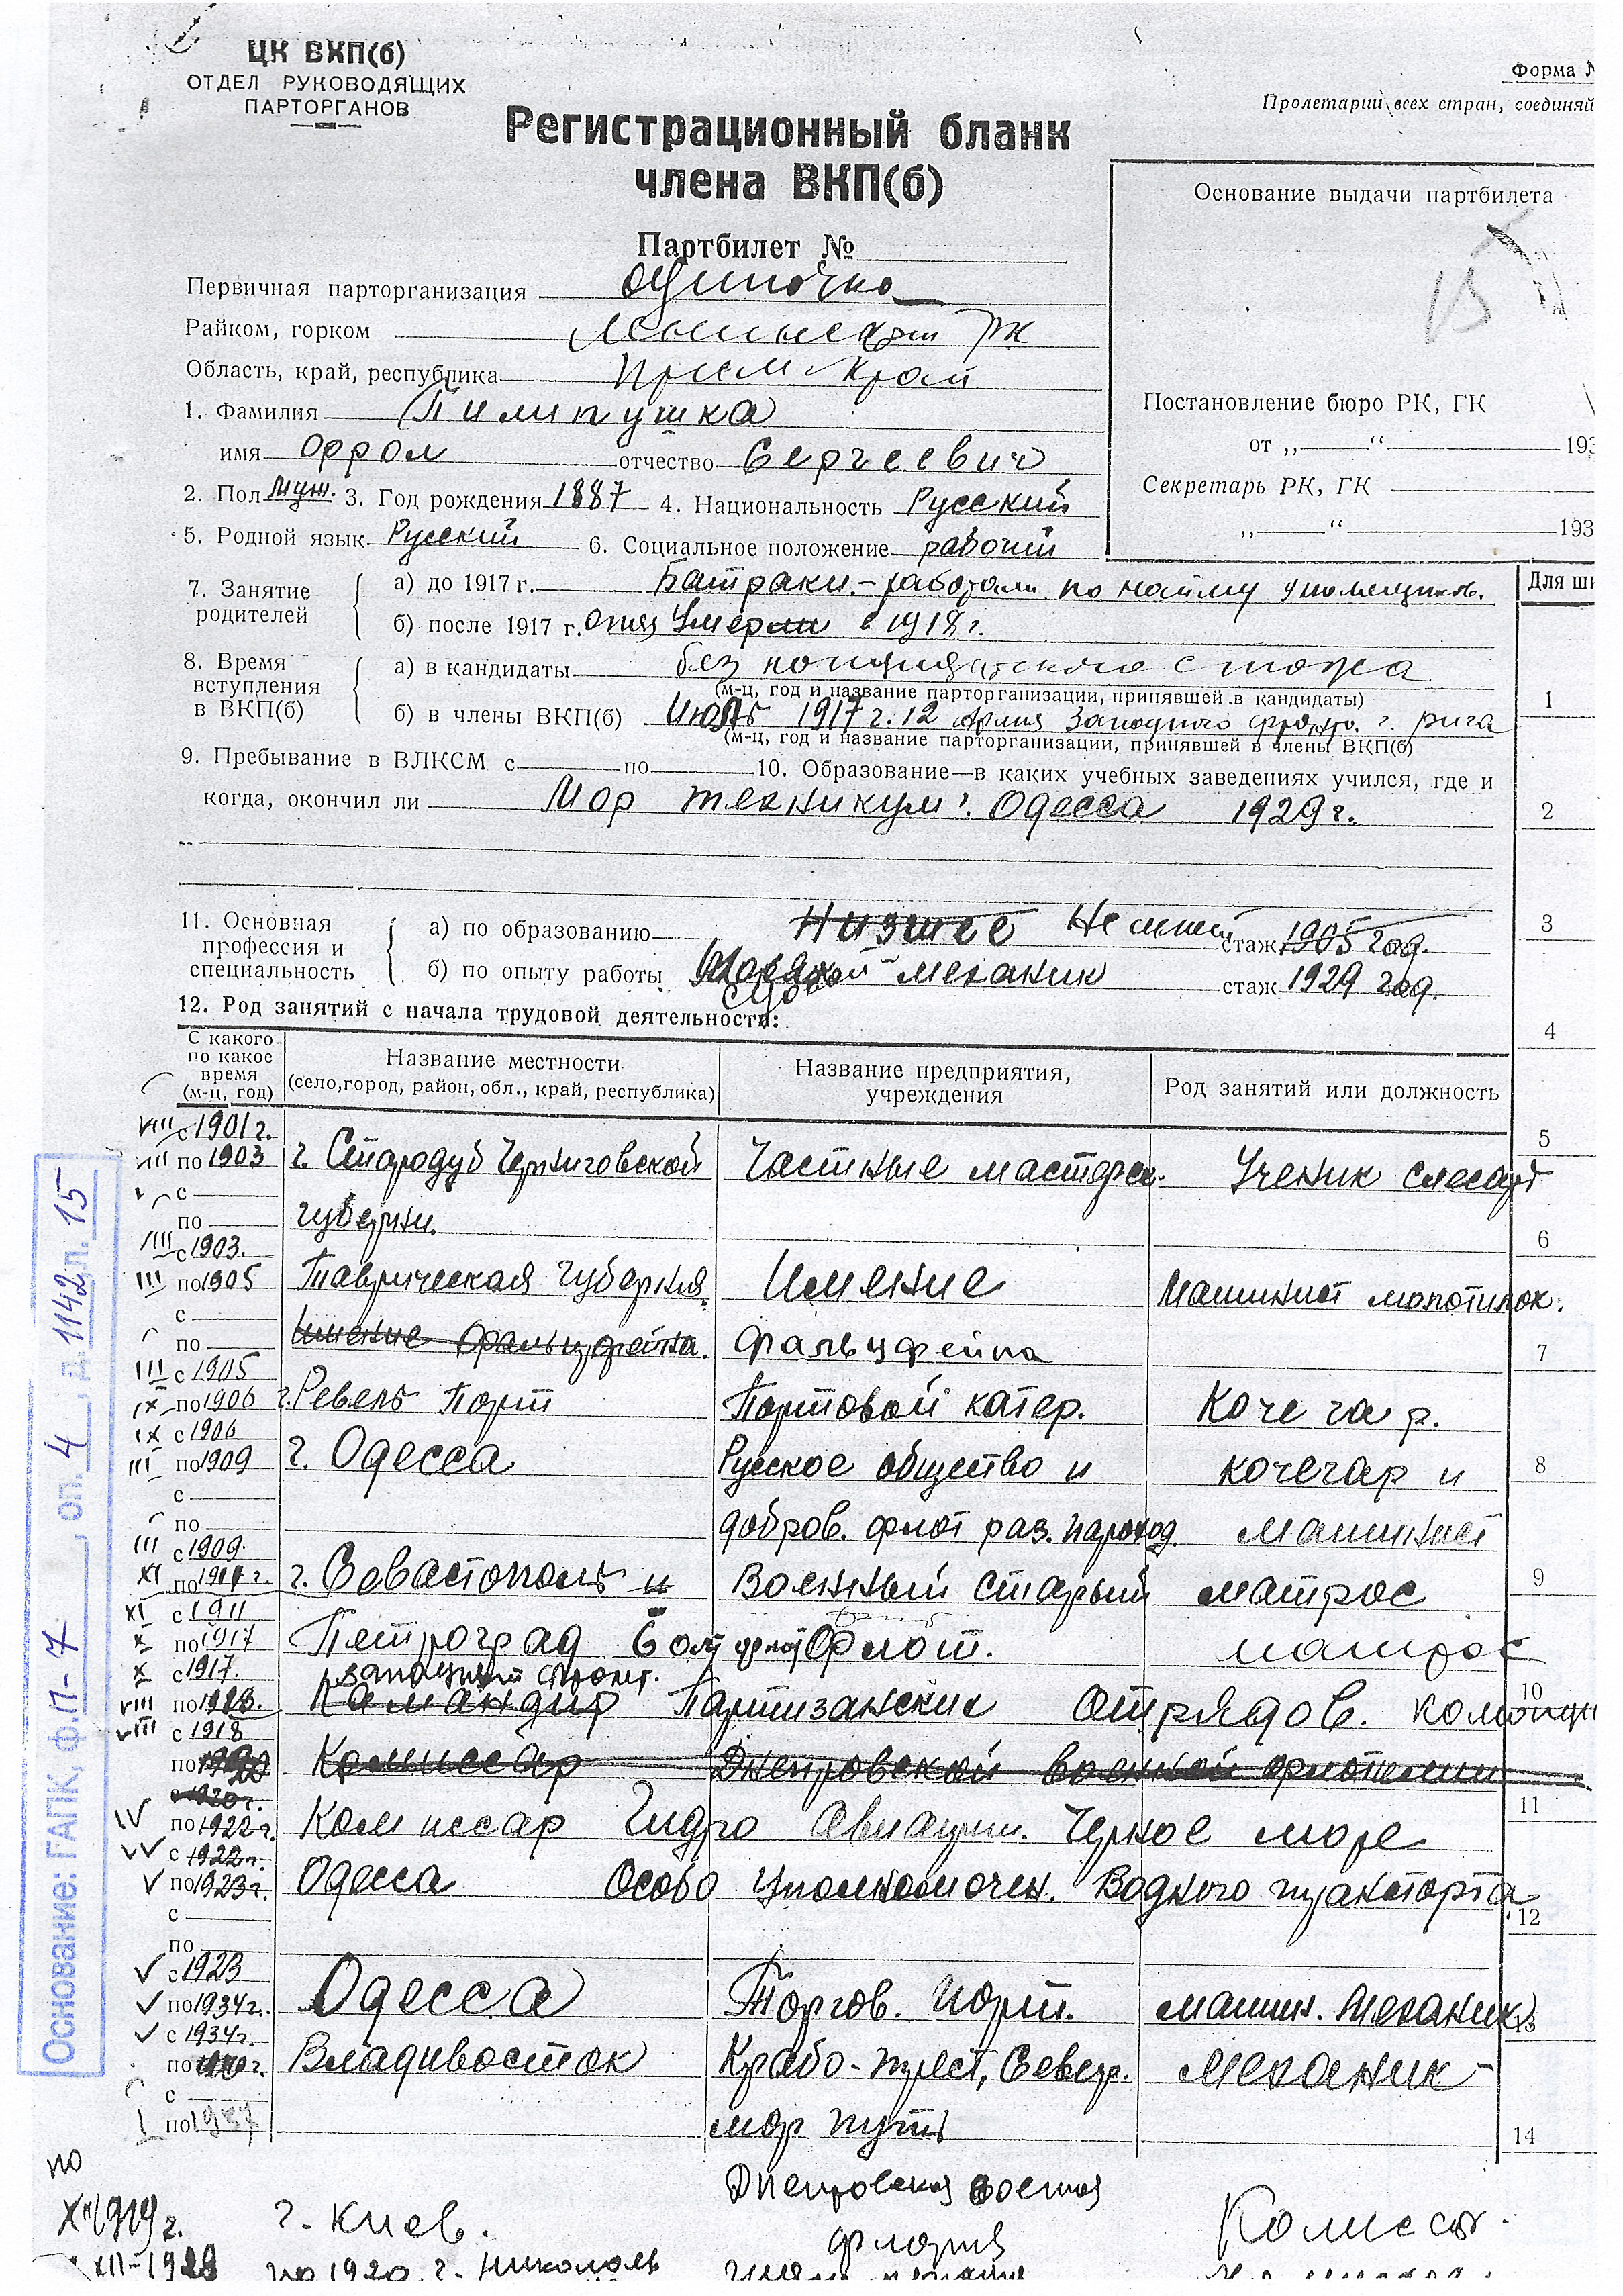 ЦК ВКП(б)
ОТДЕЛ РУКОВОДЯЩИХ
ПАРТОРГАНОВ
Форма
Пролетарии всех стран, соединяй
Регистрационный бланк
члена ВКП(б)
Партбилет №
Основание выдачи партбилета
Первичная парторганизация одиночка
Райком, горком Ленинский РК
Область, край, республика Прим край
1. Фамилия Пилипушка
имя Фрол отчество Сергеевич
2. Пол муж. 3. Год рождения 1887 4. Национальность Русский
5. Родной язык Русский 6. Социальное положение рабочий
Постановление бюро РК, ГК
от „ “ 193
Секретарь РК, ГК
„ “ 193
Для ши
7. Занятие родителей
а) до 1917 г. Батраки. – работали по найму у помещиков.
б) после 1917 г. отец умерли в 1918 г.
8. Время вступления в ВКП(б)
а) в кандидаты без кандидатского стажа
(м-ц, год и название парторганизации, принявшей в кандидаты)
б) в члены ВКП(б) Июль 1917 г. 12 Армия Западного фронта. г. Рига
(м-ц, год и название парторганизации, принявшей в члены ВКП(б)
9. Пребывание в ВЛКСМ с по 10. Образование—в каких учебных заведениях учился, где и
когда, окончил ли Мор техникум г. Одесса 1929 г.
11. Основная профессия и специальность
а) по образованию Низшее стаж 1905 год.
б) по опыту работы механик стаж 1929 год.
12. Род занятий с начала трудовой деятельности:
С какого по какое время (м-ц, год)
Название местности (село, город, район, обл., край, республика)
Название предприятия, учреждения
Род занятий или должность
VIII с 1901 г.
VIII по 1903 г. Стародуб Черниговской Частные мастерск. Ученик слесаря
с
по губерни.
VIII с 1903.
III по 1905 Таврическая губерния. Имение Машинист молотилок.
с
по Имение Фальцфейна. Фальцфейна
III с 1905
IX по 1906 г. Ревель Порт Портовой катер. Кочегар.
IX с 1906
III по 1909 г. Одесса Русское общество и кочегар и
с
по добров. флот раз. пароход. машинист
III с 1909
XI по 1911 г. г. Севастополь и Военный старый матрос
XI с 1911
X по 1917 Петроград Балт флот Флот. матрос
X с 1917. Западный фронт.
VIII по 1918. Командир Партизанских Отрядов. команди
VIII с 1918
по 1920 Комиссар Днепровской военной флотилии
с 1920 г.
IV по 1922 г. Комиссар Гидро Авиации. Черное море
с 1922 г.
V по 1923 г. Одесса Особо Уполномочен. Водного транспорта
с
по
с 1923
по 1934 г. Одесса Торгов. порт. машин. Механик
с 1934 г.
по Владивосток Крабо-трест, Север. механик
с
по 1937 мор путь
по
XII 1919 г. г. Киев. Днепровская военная Комиссар
флотилия
XII–1920 по 1920 г. Николаев
1
2
3
4
5
6
7
8
9
10
11
12
13
14
Основание: ГАПК, ф.П-7, оп. 4, д. 1142 л. 15